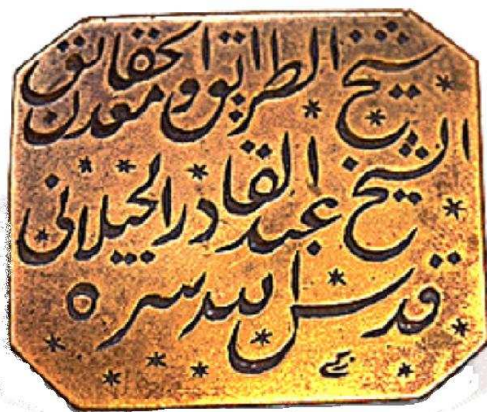 شيخ الطرائق ومعدن الحقائق
الشيخ عبد القادر الجيلاني
قدس الله سره